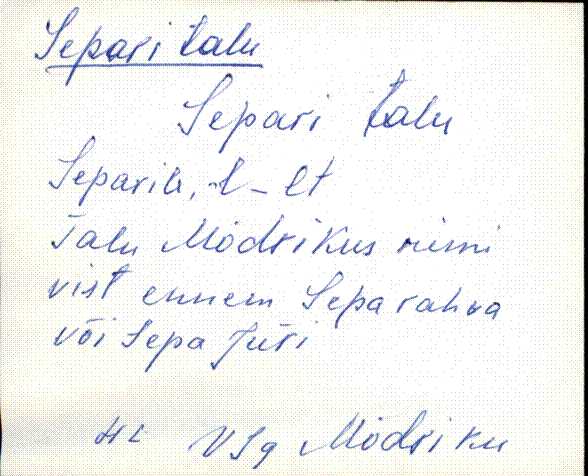 Separi talu
Separi talu
Separile, -l -lt
Talu Mödrikus nimi
vist ennem Sepa rahva
või Sepa Jüri
VJg Mödriku